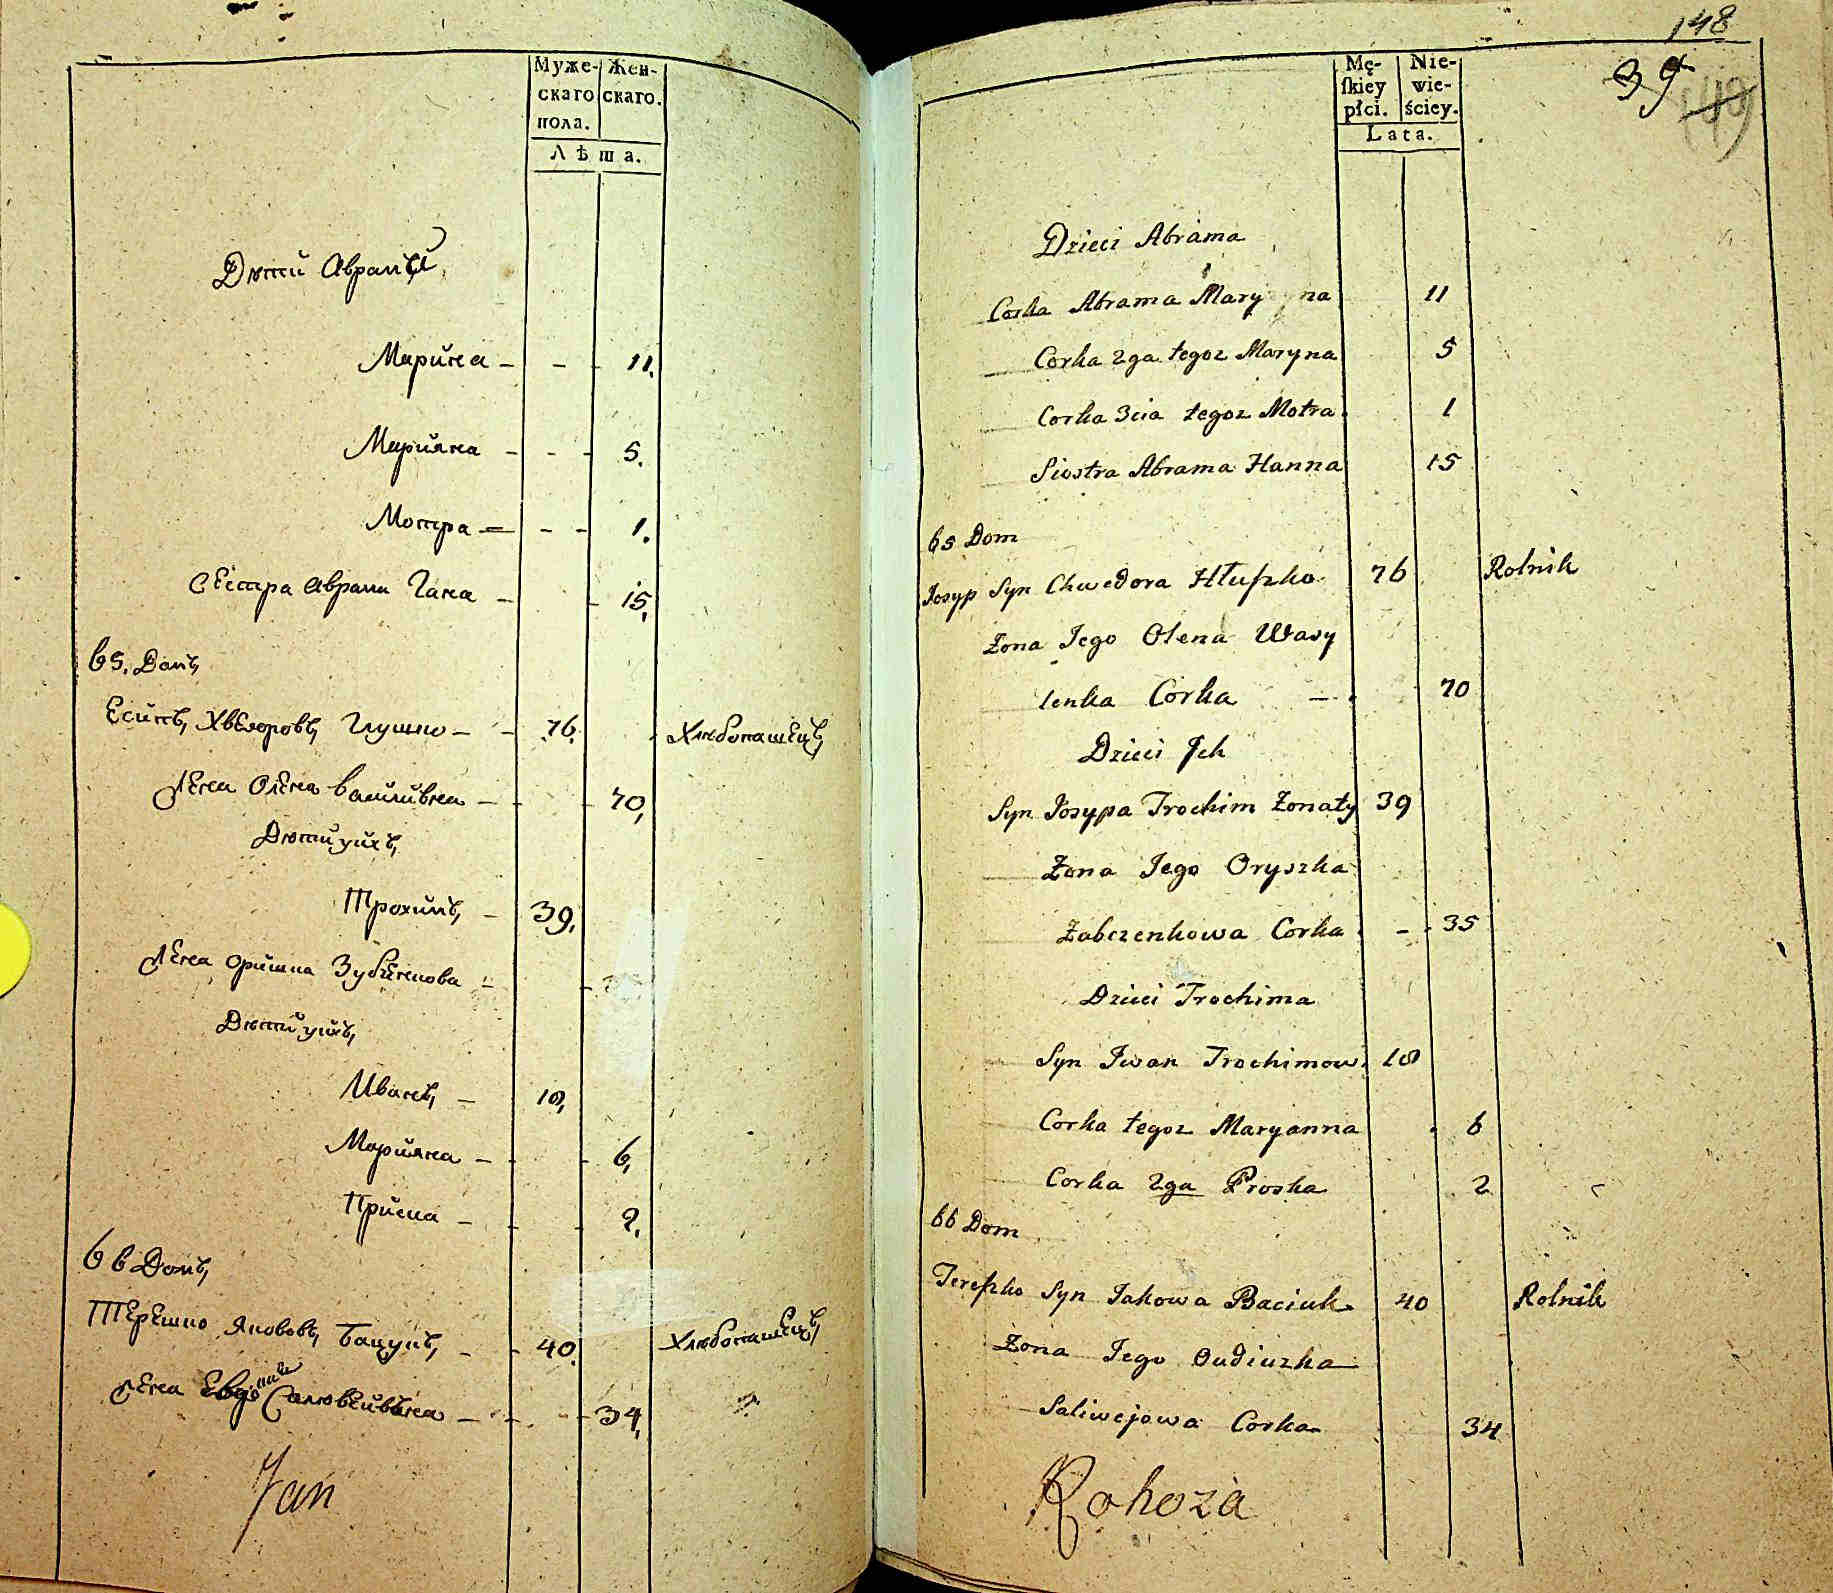 Муже-
скаго
пола.
Жен-
скаго.
Лѣта.
Дѣти Аврамꙋ
Марина - - - 11.
Марияна - - - 5.
Мотра - - - 1.
Сестра Аврама Гана - - 15.
65. Домъ
Есипъ Хведоровъ Глушко - - 76. Хлебопашецъ
Жена Олена Василивна - - - 70,
Дѣти ихъ
Трохимъ - 39.
Жена Оришка Зубченкова - -
Дѣти ихъ
Иванъ - 10,
Марияна - - - 6,
Приска - - - 2.
66 Домъ
Терешко Якововъ Бацукъ - - 40. Хлебопашецъ
Жена Салювейвъна - - - 34,
Jan
148
39
Mę-
ſkiey
płci.
Nie-
wie-
ściey.
Lata.
Dzieci Abrama
Corka Abrama Maryna 11
Corka 2ga tegoz Maryna 5
Corka 3cia tegoz Motra 1
Siostra Abrama Hanna 15
65 Dom
Josyp Syn Chwedora Hłuſzko 76 Rolnik
Żona Jego Olena Wasy
lenka Corka - 70
Dzieci Jch
Syn Josypa Trochim Żonaty 39
Żona Jego Oryszka
Zabczenkowa Corka - 35
Dzieci Trochima
Syn Jwan Trochimow 10
Corka tegoz Maryanna 6
Corka 2ga Proska 2
66 Dom
Tereſzko Syn Jakowa Baciuk 40 Rolnik
Żona Jego Oudiuzka
Saliwejowa Corka 34
Rohoza